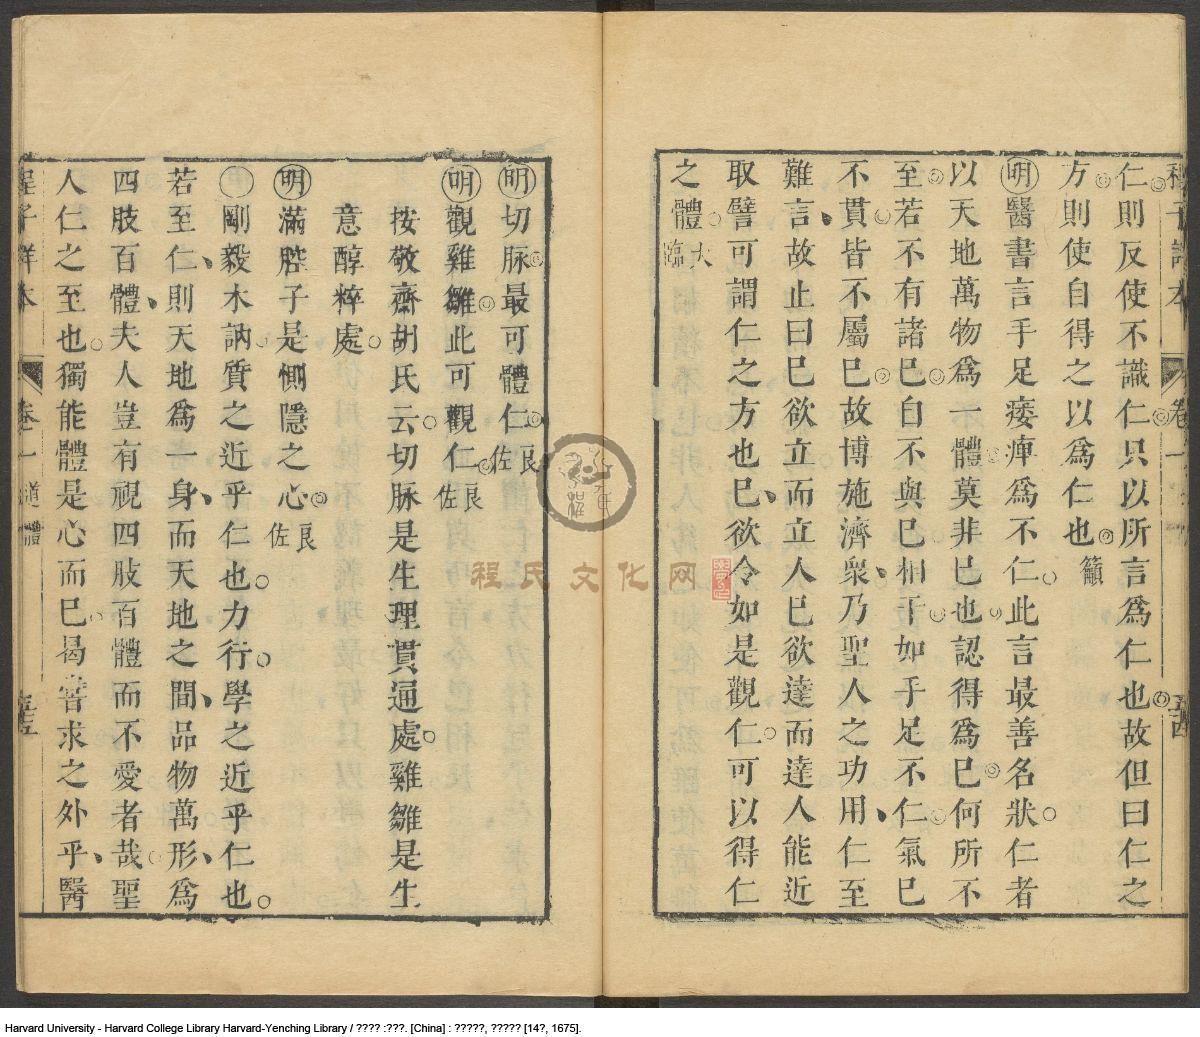 仁則反使不識仁只以所言爲仁也故但曰仁之
方則使自得之以爲仁也 籲
明醫書言手足痿痺爲不仁此言最善名狀仁者
以天地萬物爲一體莫非巳也認得爲巳何所不
至若不有諸巳自不與巳相干如手足不仁氣巳
不貫皆不屬巳故博施濟衆乃聖人之功用仁至
難言故止曰巳欲立而立人巳欲達而達人能近
取譬可謂仁之方也巳欲令如是觀仁可以得仁
之體 大臨
明切脉最可體仁 良佐
明觀雞雛此可觀仁 良佐
按敬齋胡氏云切脉是生理貫通處雞雛是生
意醇粹處
明滿腔子是惻隱之心 良佐
剛毅木訥質之近乎仁也力行學之近乎仁也
若至仁則天地爲一身而天地之間品物萬形爲
四肢百體夫人豈有視四肢百體而不愛者哉聖
人仁之至也獨能體是心而巳曷嘗求之外乎醫
程子詳本 卷一 道體
程氏文化网
Harvard University - Harvard College Library Harvard-Yenching Library / ???? :???. [China] : ?????, ????? [14?, 1675].